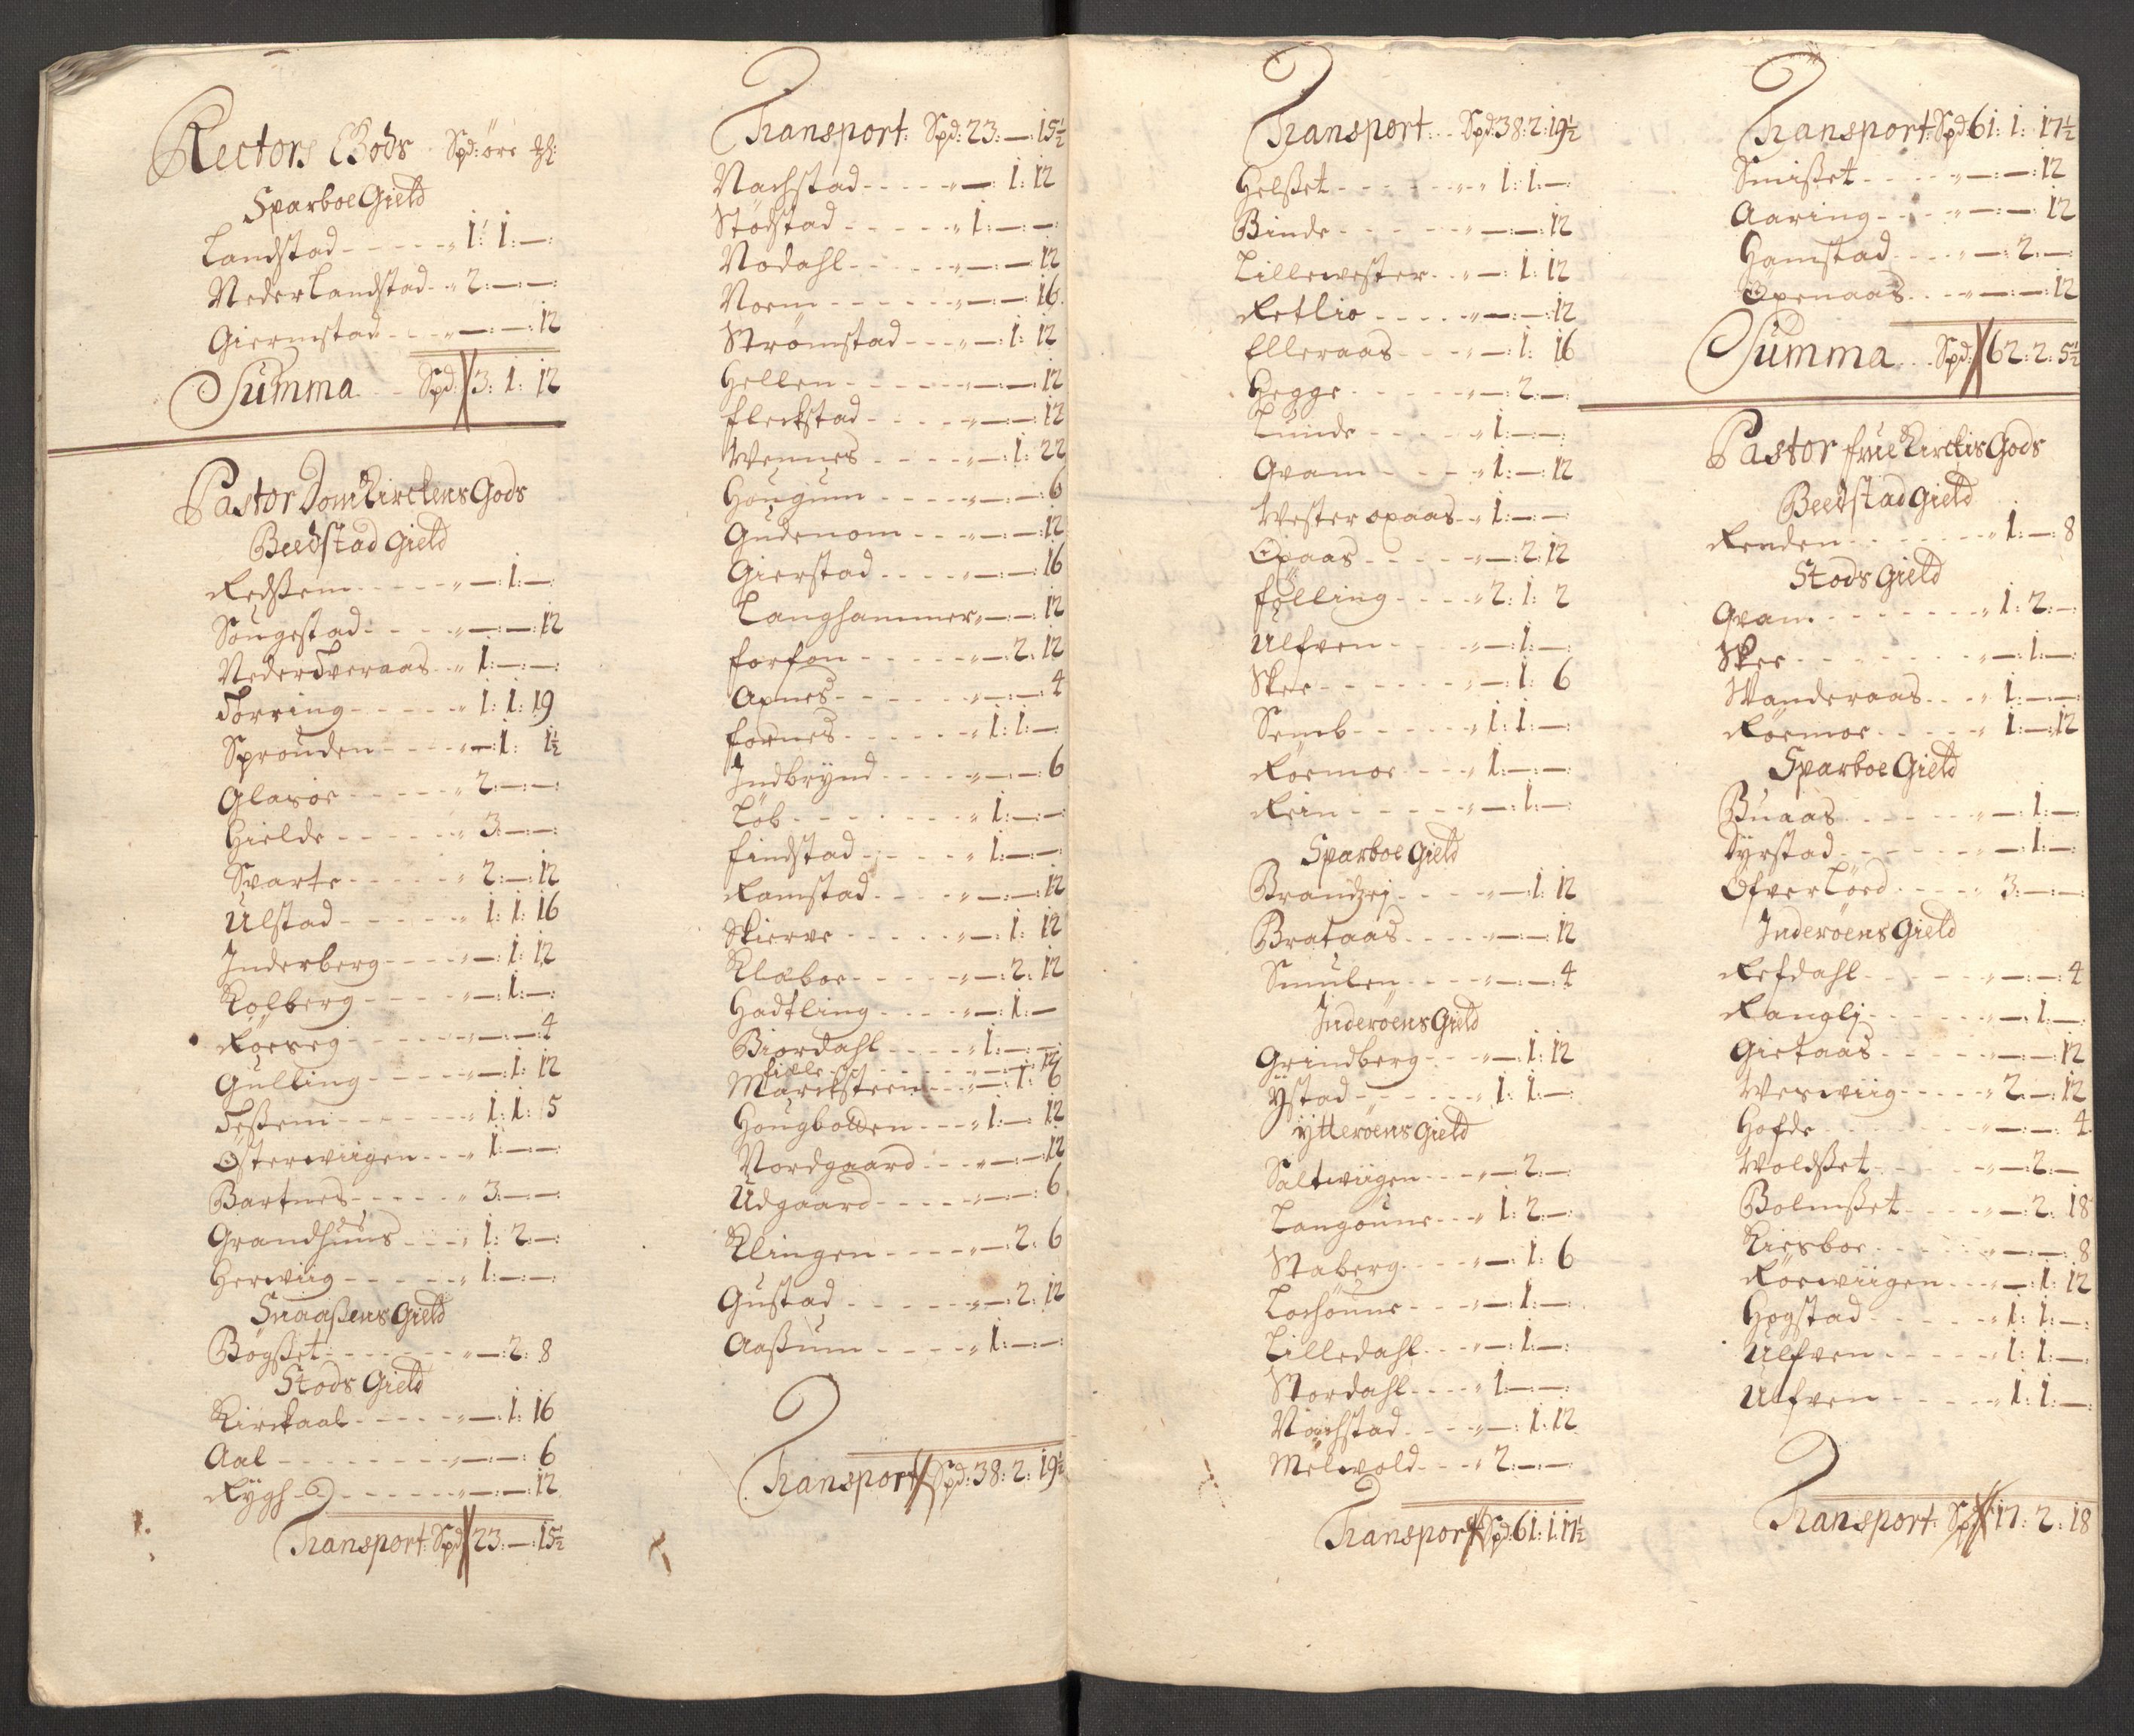 Rectors Gods Spd: öre
Sparboe Gield
Landstad - - - - - " 1: 1: —:
Neder Landstad - - " 2: —: —:
Giermstad - - - " —: —: 12
Summa - - Spd: 3: 1: 12
Pastor DomKirckens Gods
Beedstad Gield
Redßem - - - - " —: 1: —:
Sougestad - - - - " —: —: 12
Neder Tveraas - - " 1: —: —:
Torring - - - - - " 1: 1: 19
Sprouden - - - - " —: 1: 1½
Glasoe - - - - - " 2: —: —:
Hielde - - - - - " 3: —: —:
Svarte - - - - - " 2: —: 12
Ulstad - - - - - " 1: 1: 16
Inderberg - - - - " —: 1: 12
Kolberg - - - - " —: 1: —:
Röeseg - - - - - " —: —: 4
Gulling - - - - - " —: 1: 12
Teßem - - - - - " 1: 1: 5
Österwiigen - - - " 1: —: —:
Bartnes - - - - - " 3: —: —:
Grandhuus - - - " 1: 2: —:
Herwiig - - - - - " 1: —: —:
Snaaßens Gield
Bögßet - - - - - " —: 2: 8
Stods Gield
Kirckaal - - - - " —: 1: 16
Aal - - - - - - - " —: —: 6
Rÿgh - - - - - - " —: —: 12
Transport: Spd 23: —: 15½
Transport: Spd: 23: —: 15½
Nachstad - - - - " —: 1: 12
Stödstad - - - - - " 1: —: —:
Nodahl - - - - - " —: —: 12
Noem - - - - - - " —: —: 16
Strömstad - - - " —: 1: 12
Hellen - - - - - - " —: —: 12
Fleckstad - - - - " —: —: 12
Wennes - - - - " —: 1: 22
Hougum - - - - - " —: —: 6
Gudenom - - - " —: —: 12
Gierstad - - - - " —: —: 16
Langhammer " —: —: 12
Forfon - - - - - " —: 2: 12
Apnes - - - - - " —: —: 4
Fornes - - - - - - " 1: 1: —
Indbrÿnd - - - - " —: —: 6
Löb - - - - - - - " 1: —: —:
Findstad - - - - - " 1: —: —:
Ramstad - - - - " —: —: 12
Skierve - - - - - " —: 1: 12
Klæboe - - - - - " —: 2: 12
Hadtling - - - - " —: 1: —
Biordahl - - - - " 1: —: —:
Lille - - - - - - " —: —: 12
Marcksteen - - - " —: 1: 6
Hougbolden - - - " 1: —: 12
Nordgaard - - - " —: —: 12
Udgaard - - - - - " —: —: 6
Klingen - - - - " —: 2: 6
Gustad - - - - - " —: 2: 12
Aaßum - - - - - " 1: —: —:
Transport Spd: 38: 2: 19½
Transport: - - Spd: 38: 2: 19½
Helßet - - - - - - " 1: 1: —:
Binde - - - - - - " —: —: 12
Lillewester - - " —: 1: 12
Retlio - - - - - " —: —: 12
Elleraas - - - " —: 1: 16
Hegge - - - - - " —: 2: —:
Lunde - - - - - " 1: —: —:
Gvam - - - - " 1: —: 12
Wester opaas - " 1: —: —:
Opaas - - - - - " —: 2: 12
Fölling - - - - " 2: 1: 2
Ulfven - - - - " —: 1: —:
Skee - - - - - - " —: 1: 6
Semb - - - - - " 1: 1: —:
Röemoe - - - " 1: —: —:
Rein - - - - - " —: 1: —:
Sparboe Gield
Brandzej - - - - " —: 1: 12
Brataas - - - - " —: —: 12
Smulen - - - - " —: —: 4
Inderöens Gield
Grindberg - - - " —: 1: 12
Ÿstad - - - - - " 1: 1: —:
Ytteröens Gield
Saltwiigen - - - " —: 2: —:
Langoune - - - " 1: 2: —:
Staberg - - - - " —: 1: 6
Lochoune - - - " —: 1: —:
Lilledahl - - - " —: 1: —:
Stordahl - - - - " 1: —: —:
Nachstad - - - - " —: 1: 12
Melwold - - - " 2: —: —:
Transport Spd: 61: 1: 17½
Transport: Spd 61: 1: 17½
Smißet - - - - - " —: —: 12
Aaring - - - - " —: —: 12
Hamstad - - - - " —: 2: —:
Openaas - - - " —: —: 12
Summa - - Spd: 62: 2: 5½
Pastor Frue Kirckis Gods
Beedstad Gield
Renden - - - - - - " 1: —: 8
Stods Gield
Gvam - - - - - - " 1: 2: —:
Skee - - - - - - - " —: 1: —:
Wanderaas - - - " 1: —: —:
Röemoe - - - - - " 1: —: 12
Sparboe Gield
Buaas - - - - - - " —: 1: —:
Dÿrstad - - - - - - " —: 1: —:
Ofver Löed - - - - " 3: —: —:
Inderöens Gield
Refdahl - - - - - - " —: —: 4
Ranglj - - - - - - " —: 1: —:
Gietaas - - - - - " —: —: 12
Werwiig - - - - - " 2: —: 12
Hofde - - - - - - " —: —: 4
Woldßet - - - - - " —: 2: —
Bolmßet - - - - " —: 2: 18
Kiesboe - - - - - " —: —: 8
Röewiigen - - - " —: 1: 12
Hogstad - - - - - " 1: 1: —:
Ulfven - - - - - " 1: 1: —:
Ulfven - - - - - " 1: 1: —:
Transport: Spd 17: 2: 18